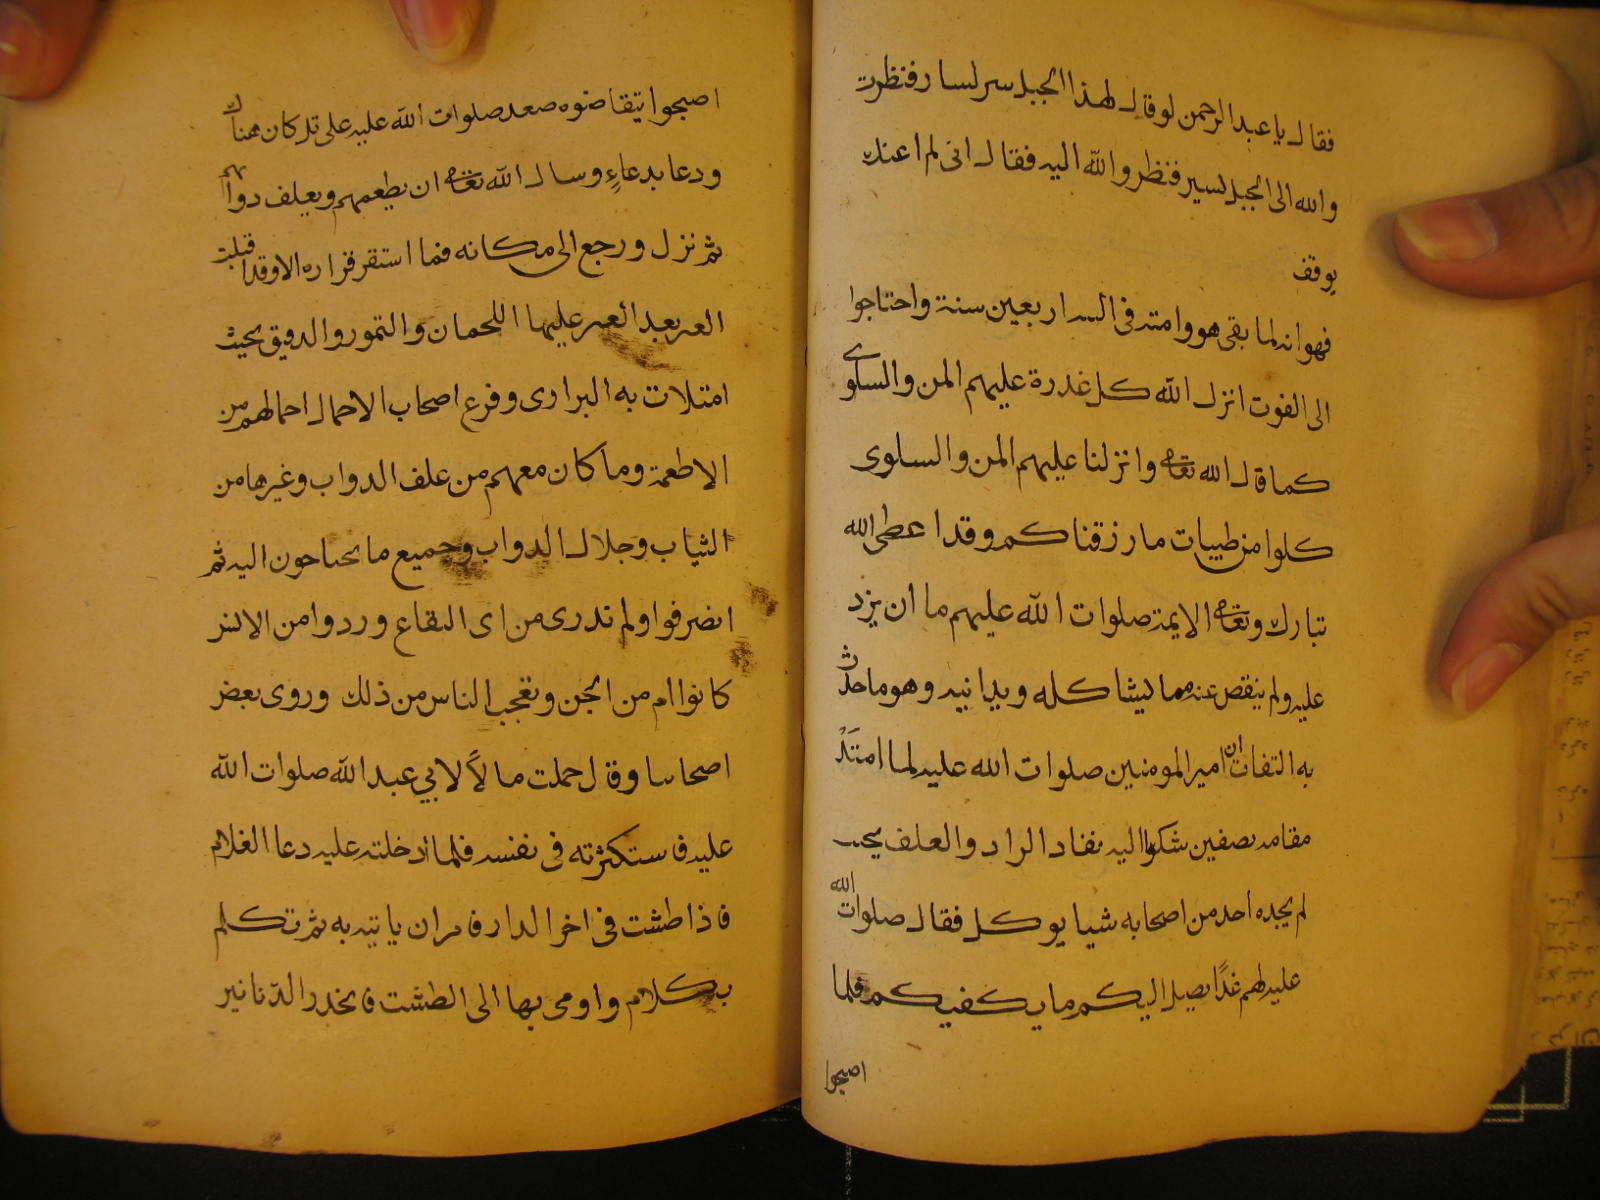 فقال يا عبد الرحمن لو قال لهذا الجبل سر لسار فنظرت
والله الى الجبل لسير فنظر والله اليه فقال انى لم اعنك
يوقف
فهو انه لما بقى هو وامته فى التيه اربعين سنة واحتاجوا
الى القوت انزل الله كل غدرة عليهم المن والسلوى
كما قال الله تعالى وانزلنا عليهم المن والسلوى
كلوا من طيبات ما رزقناكم وقد اعطى الله
تبارك وتعالى الايمة صلوات الله عليهم ما ان يزد
عليه ولم ينقص عنه مما ليشاكله ويدانيه وهو ما حدث
به الثقات ان امير المومنين صلوات الله عليه لما امتد
مقامه بصفين شكوا اليه نفاد الزاد والعلف بحيث
لم يجده احد من اصحابه شيا يوكل فقال صلوات الله
عليه لهم غدًا يصل اليكم ما يكفيكم فلما
اصبحوا
اصبحوا يتقاضوه صعد صلوات الله عليه على تل كان هناك
ودعا بدعاءٍ وسال الله تعالى ان يطعمهم ويعلف دوابهم
ثم نزل ورجع الى مكانه فما استقر قراره الا وقد اقبلت
العير بعد العير عليها اللحمان والتمور والدقيق بحيث
امتلات به البرارى وفرغ اصحاب الاحمال احمالهم من
الاطعمة وما كان معهم من علف الدواب وغيرها من
الثياب وجلال الدواب وجميع ما يحتاجون اليه ثم
انصرفوا ولم ندرى من اى البقاع وردوا من الانس
كانوا ام من الجن وتعجب الناس من ذلك وروى بعض
اصحابنا وقال حملت مالًا لابي عبد الله صلوات الله
عليه فاستكثرته فى نفسه فلما ادخلته عليه دعا الغلام
فاذا طشت فى اخر الدار فامر ان ياتيه به ثم تكلم
بكلام واومى بها الى الطشت فانحدر الدنانير